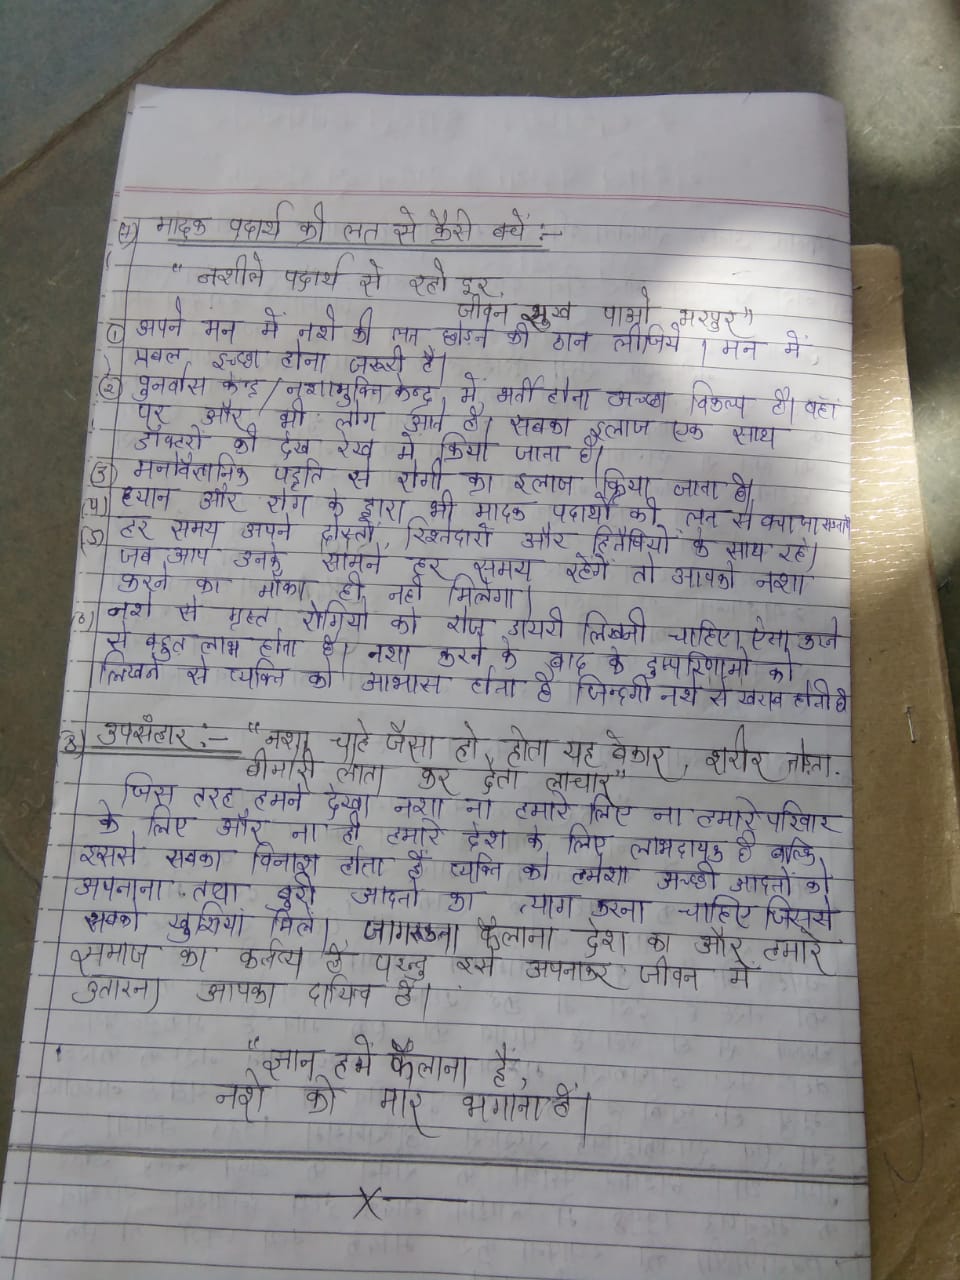 (7) मादक पदार्थ की लत से कैसे बचें :-
"नशीले पदार्थ से रहो दूर,
जीवन सुख पाओ भरपूर"
(1) अपने मन में नशे की लत छोड़ने की ठान लीजिये। मन में
प्रबल इच्छा होना जरूरी है।
(2) पुनर्वास केन्द्र/नशामुक्ति केन्द्र में भर्ती होना अच्छा विकल्प है। वहाँ
पर और भी लोग आते है। सबका इलाज एक साथ
डॉक्टरो की देख रेख में किया जाता है।
(3) मनोवैज्ञानिक पद्दति से रोगी का इलाज किया जाता है।
(4) ध्यान और योग के द्वारा भी मादक पदार्थो की लत से बचा जा सकता
(5) हर समय अपने दोस्तों, रिश्तदारो और हितैषियों के साथ रहे।
जब आप उनके सामने हर समय रहेंगे तो आपको नशा
करने का मौका ही नही मिलेगा।
(6) नशे से ग्रस्त रोगियो को रोज डायरी लिखनी चाहिए, ऐसा करने
से बहुत लाभ होता है। नशा करने के बाद के दुष्परिणामो को
लिखने से व्यक्ति को आभास होता है जिन्दगी नशे से खराब होती है
(8) उपसँहार :- "नशा चाहे जैसा हो, होता यह बेकार, शरीर तोड़ता.
बीमारी लाता कर देता लाचार"
जिस तरह हमने देखा नशा ना हमारे लिए ना हमारे परिवार
के लिए और ना ही हमारे देश के लिए लाभदायक है बल्कि
इससे सबका विनाश होता है व्यक्ति को हमेशा अच्छी आदतों को
अपनाना तथा बुरी आदतो का त्याग करना चाहिए जिससे
सबको खुशियां मिलें। जागरूकता फैलाना देश का और हमारे
समाज का कर्तव्य है परन्तु इसे अपनाकर जीवन में
उतारना आपका दायित्व है।
"ज्ञान हमें फैलाना है,
नशे को मार भगाना है।